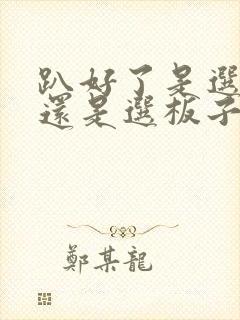 趴好了是選
還是選板子
鄭某龍